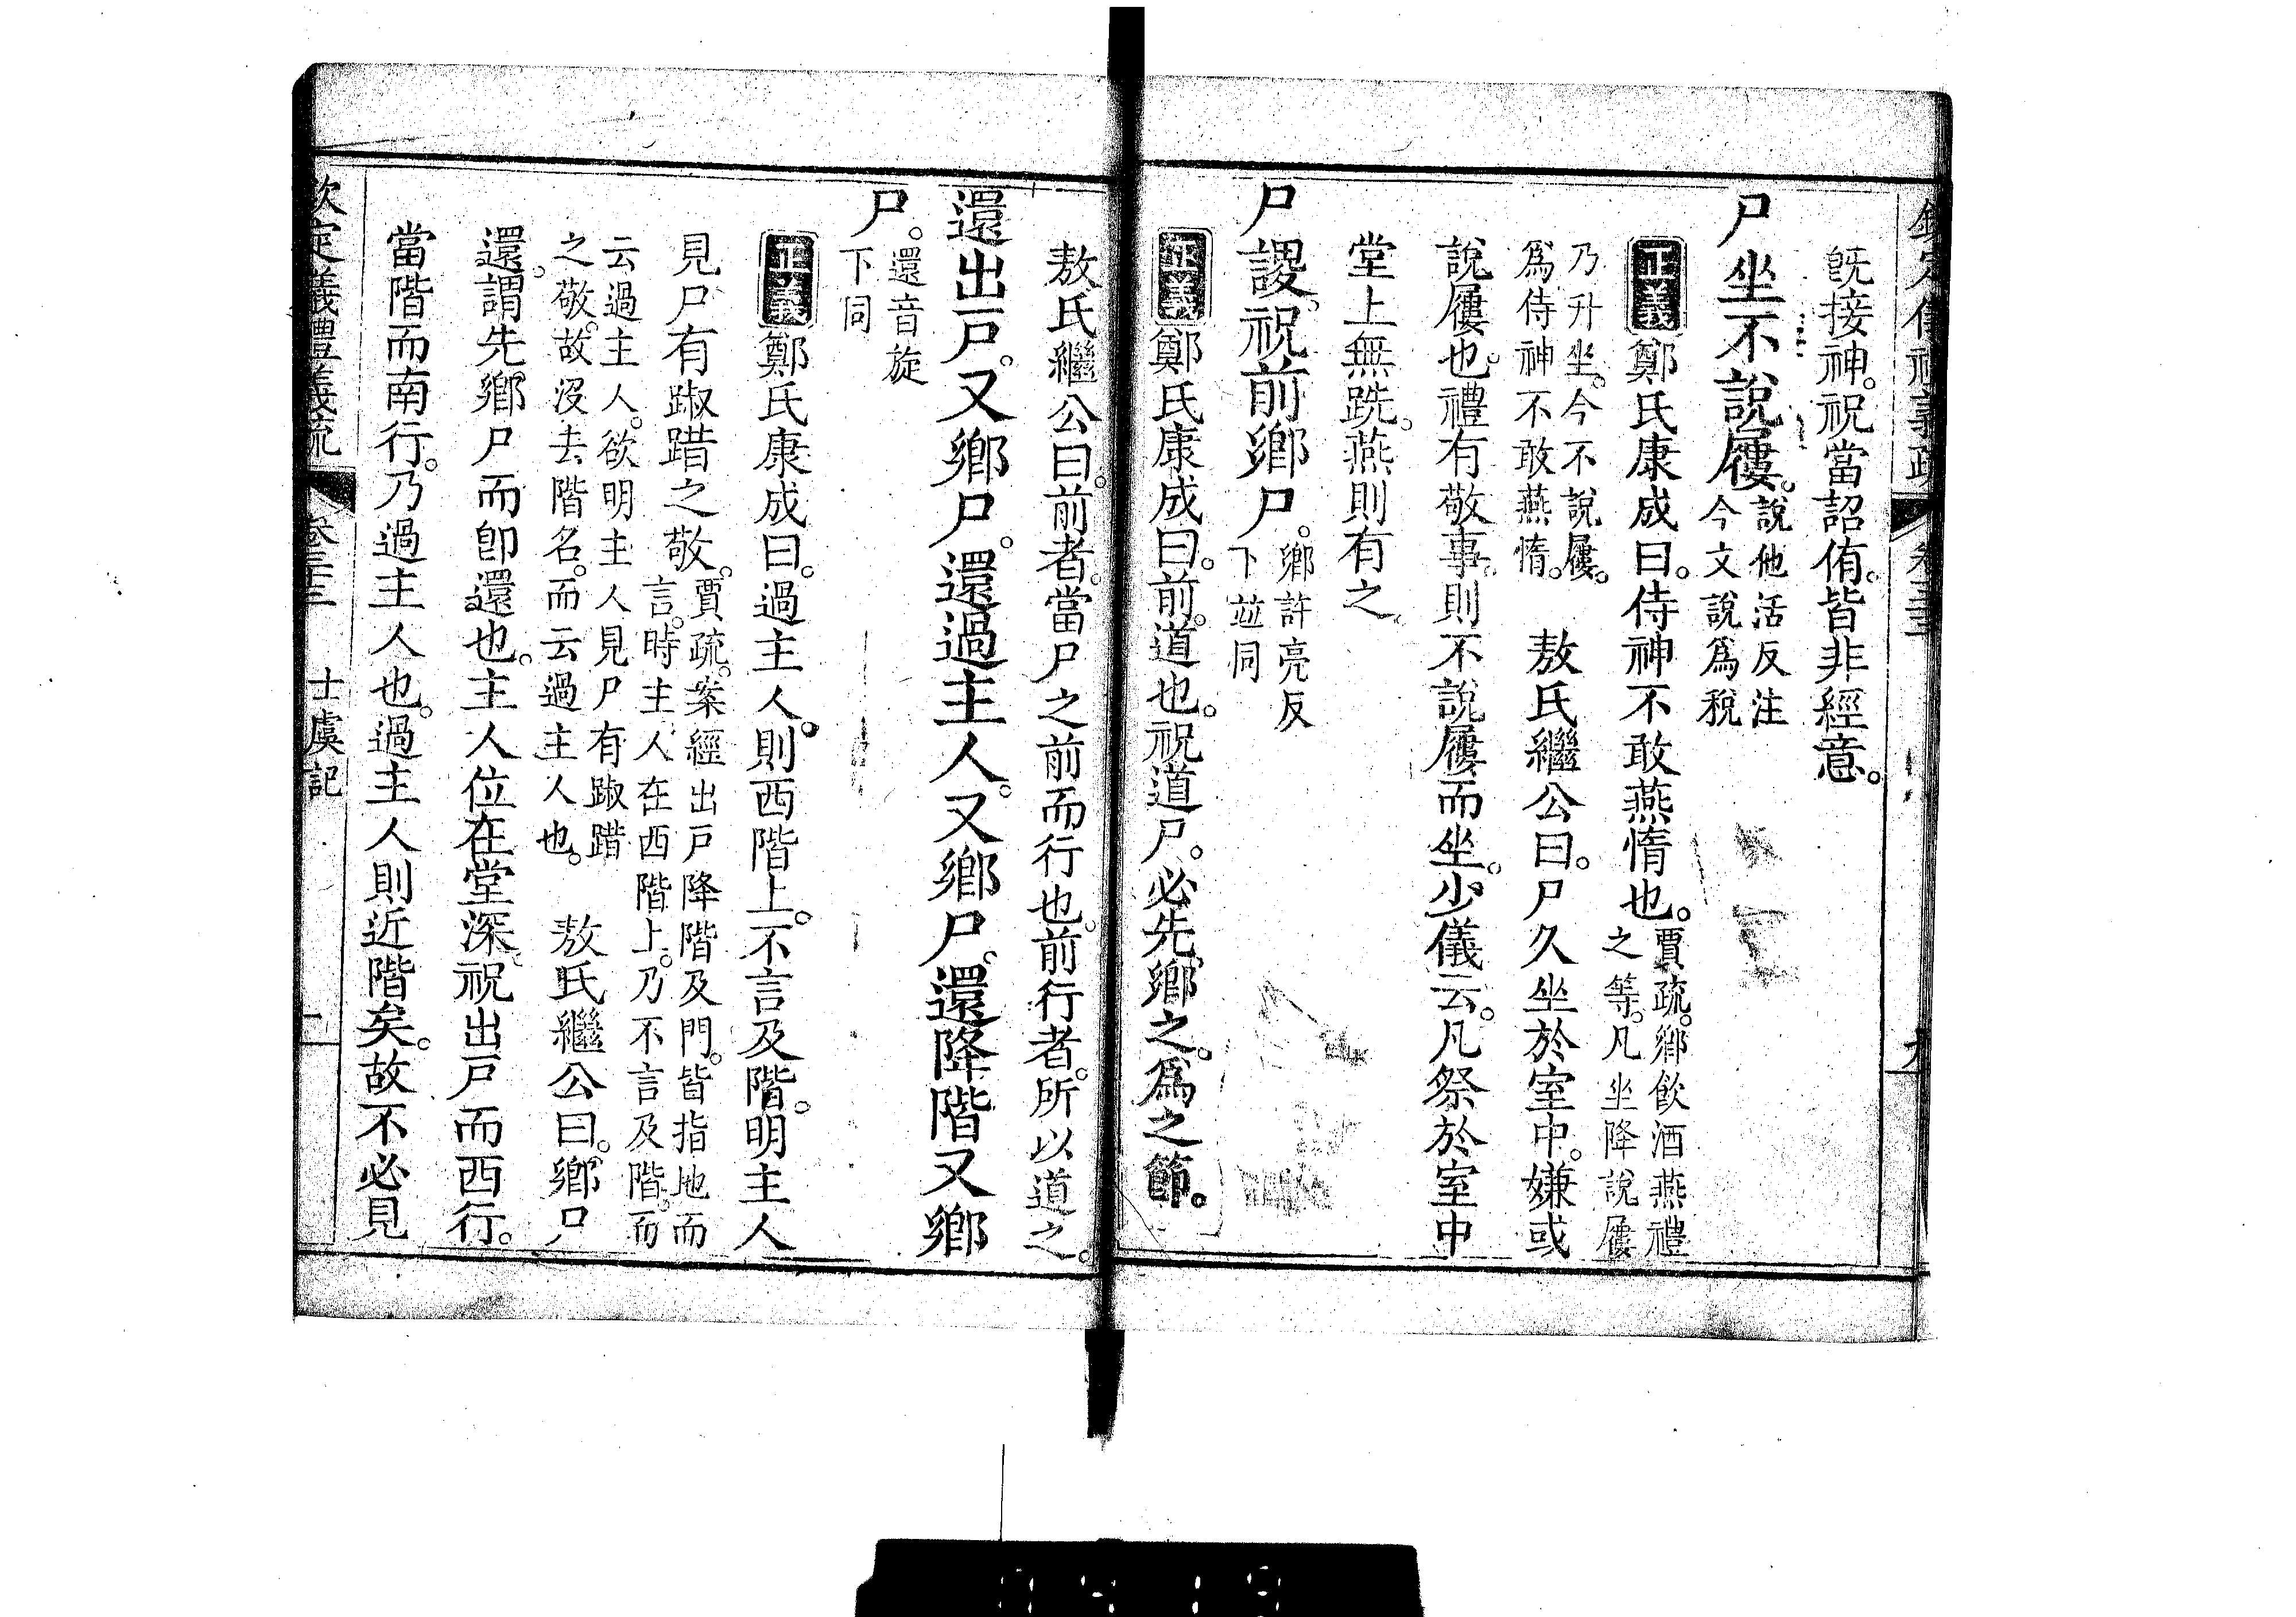 既接神。祝當詔侑。皆非經意。
尸坐不說屨。說他活反注
今文說爲稅
正義鄭氏康成曰。侍神不敢燕惰也。賈疏。鄉飲酒燕禮
之等。凡坐降說屨
乃升坐。今不說屨。
爲侍神不敢燕惰。
敖氏繼公曰。尸久坐於室中。嫌或
說屨也。禮有敬事。則不說屨而坐。少儀云。凡祭於室中
堂上無跣。燕則有之
尸謖。祝前鄉尸。鄉許亮反
下並同
正義鄭氏康成曰。前。道也。祝道尸。必先鄉之。爲之節。
敖氏繼公曰。前者。當尸之前而行也。前行者。所以道之。
還出戸。又鄉尸。還過主人。又鄉尸。還降階又鄉
尸。還音旋
下同
正義鄭氏康成曰。過主人。則西階上。不言及階。明主人
見尸有踧踖之敬。賈疏。案經出戸降階及門。皆指地而
言。時主人在西階上。乃不言及階。而
云過主人。欲明主人見尸有踧踖
之敬。故沒去階名。而云過主人也。
敖氏繼公曰。鄉尸
還。謂先鄉尸而卽還也。主人位在堂深。祝出戸而西行。
當階而南行。乃過主人也。過主人則近階矣。故不必見
欽定義禮義疏 卷三十三 士虞記